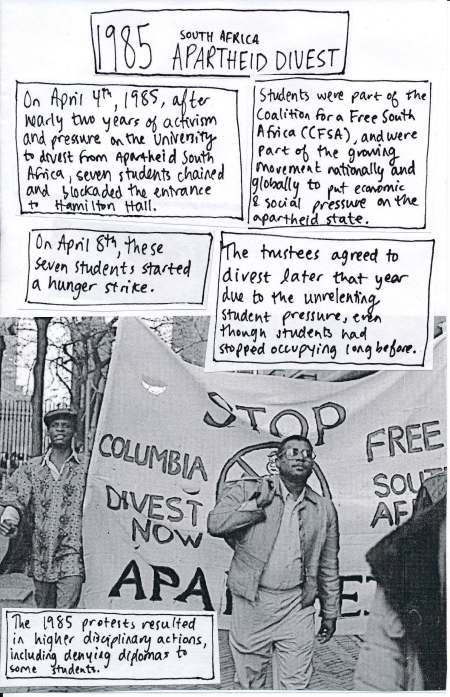 1985 SOUTH AFRICA
APARTHEID DIVEST
On April 4th, 1985, after
nearly two years of activism
and pressure on the University
to divest from Apartheid South
Africa, seven students chained
and blockaded the entrance
to Hamilton Hall.
Students were part of the
Coalition for a Free South
Africa (CFSA), and were
part of the growing
movement nationally and
globally to put economic
& social pressure on the
apartheid state.
On April 8th, these
seven students started
a hunger strike.
The trustees agreed to
divest later that year
due to the unrelenting
student pressure, even
though students had
stopped occupying long before.
STOP
COLUMBIA
DIVEST
NOW
FREE
SOU
AF
APA
The 1985 protests resulted
in higher disciplinary actions,
including denying diplomas to
some students.